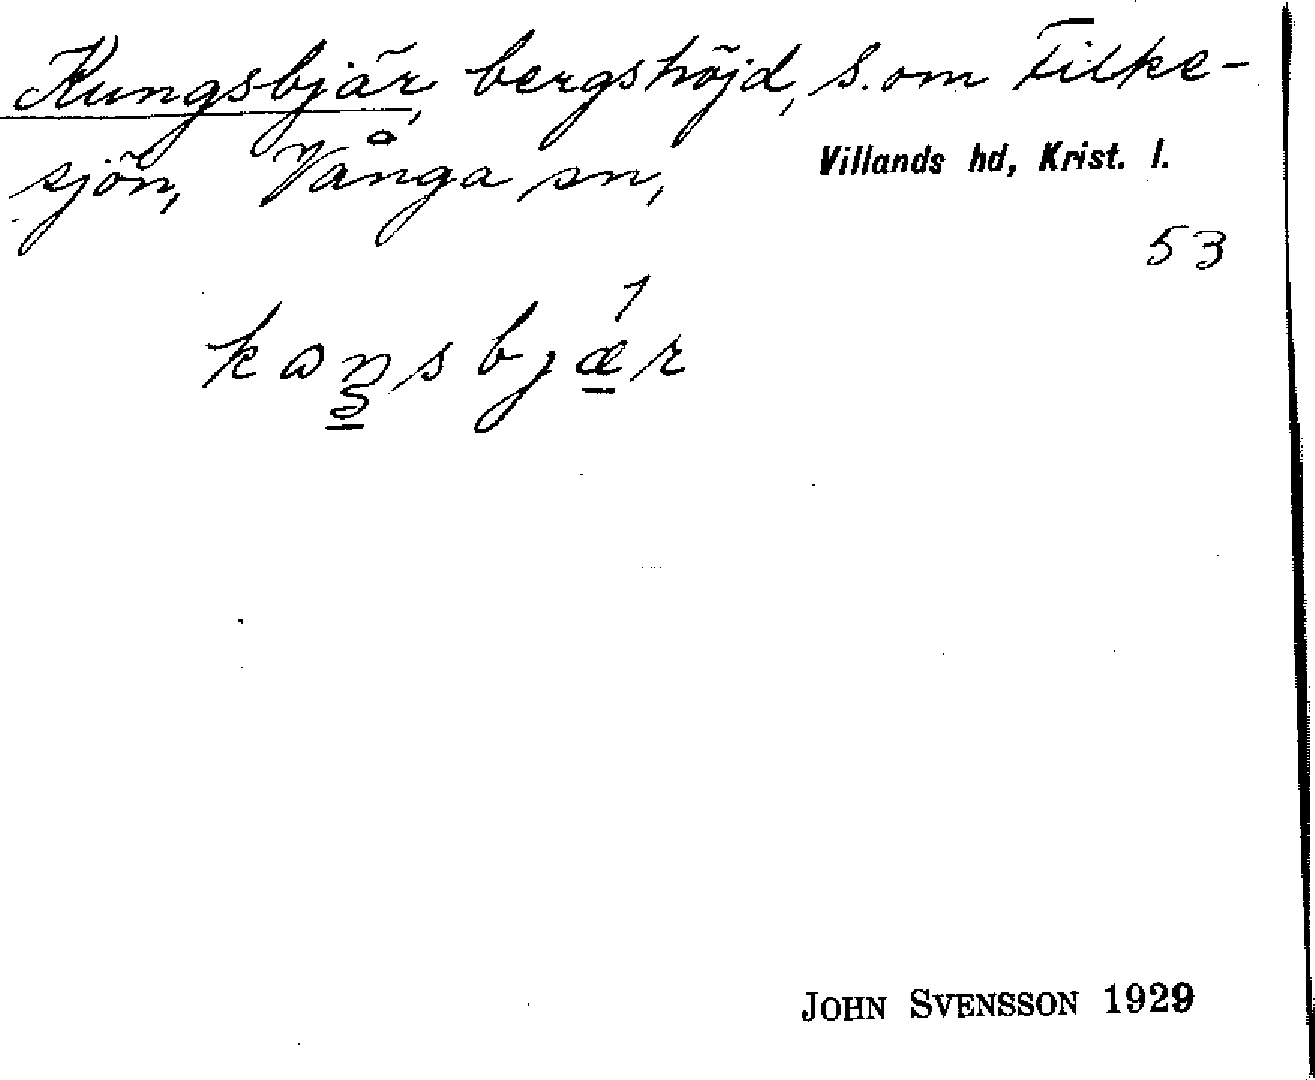 Kungsbjär, bergshöjd, S. om Filke-
sjön, Vånga sn,
Villands hd, Krist. l.
53
JOHN SVENSSON 1929